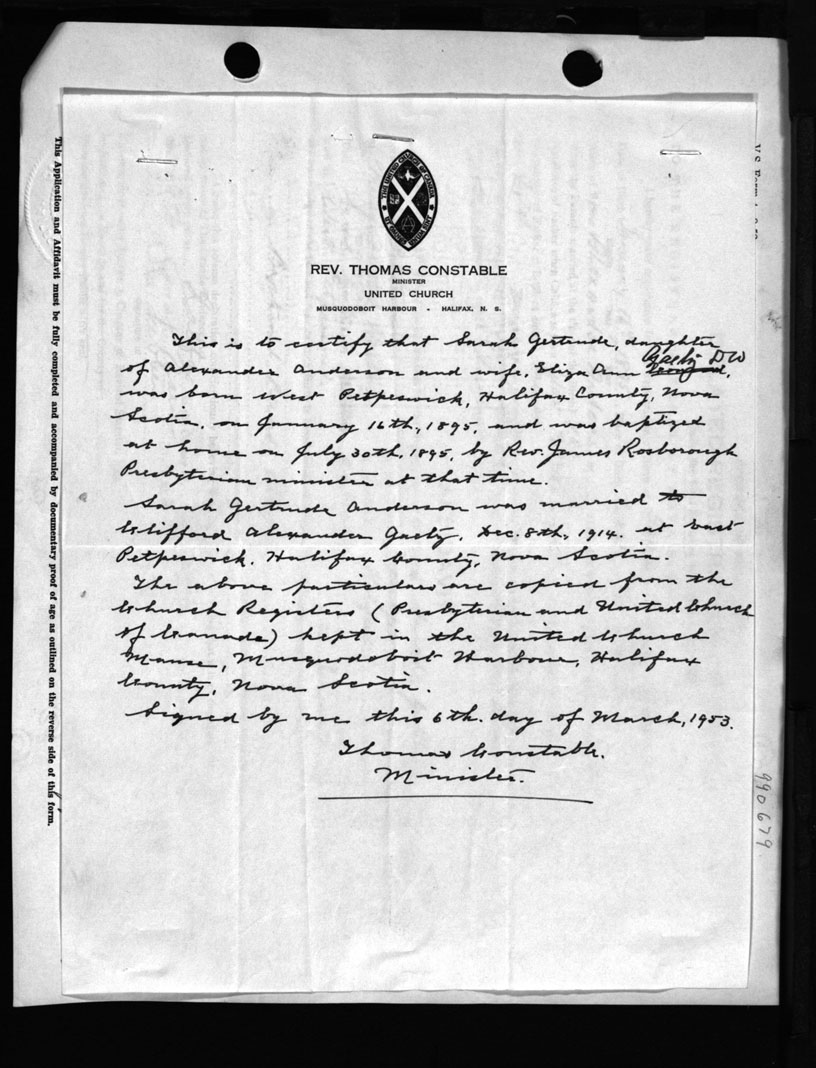 THE UNITED CHURCH OF CANADA
REV. THOMAS CONSTABLE
MINISTER
UNITED CHURCH
MUSQUODOBOIT HARBOUR - HALIFAX, N. S.
This is to certify that Sarah Gertrude, daughter
Gaetz DW
of Alexander Anderson and wife, Eliza Ann
was born West Petpeswick, Halifax County, Nova
Scotia, on January 16th, 1895, and was baptized
at home on July 30th, 1895, by Rev. James Rosborough
Presbyterian minister at that time.
Sarah Gertrude Anderson was married to
Clifford Alexander Gaetz, Dec. 8th, 1914. at East
Petpeswick, Halifax County, Nova Scotia.
The above particulars are copied from the
Church Registers (Presbyterian and United Church
of Canada) kept in the United Church
Manse, Musquodoboit Harbour, Halifax
County, Nova Scotia.
Signed by me this 6th. day of March, 1953.
Thomas Constable.
Minister.
This Application and Affidavit must be fully completed and accompanied by documentary proof of age as outlined on the reverse side of this form.
990679